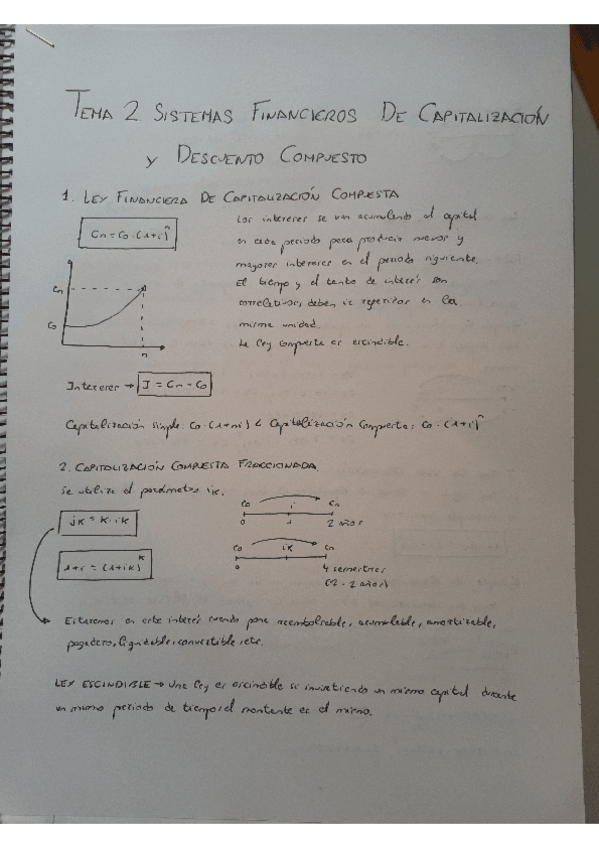 TEMA 2 SISTEMAS FINANCIEROS DE CAPITALIZACIÓN
y DESCUENTO COMPUESTO
1. LEY FINANCIERA DE CAPITALIZACIÓN COMPUESTA
Cn = Co · (1+i)^n
Los intereses se van acumulando al capital
en cada periodo para producir nuevos y
mayores intereses en el periodo siguiente.
El tiempo y el tanto de interés son
correlativos, deben ir repetidos en la
misma unidad.
La ley compuesta es escindible.
Cn
Co
n
Intereses → I = Cn - Co
Capitalización simple: Co · (1+ni) < Capitalización Compuesta: Co · (1+i)^n
2. CAPITALIZACIÓN COMPUESTA FRACCIONADA.
Se utiliza el parámetro ik.
jk = k · ik
Co i Cn
0 1 2 años
1+i = (1+ik)^k
Co ik Cn
0 4 semestres
(2 · 2 años)
Estaremos en este interés cuando pone reembolsable, acumulable, amortizable,
pagadero, liquidable, convertible, etc.
LEY ESCINDIBLE → Una ley es escindible si invirtiendo un mismo capital durante
un mismo periodo de tiempo, el montante es el mismo.